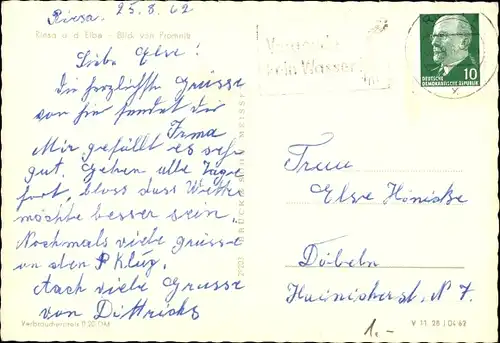 Riesa. 25.8.62
Riesa a. d. Elbe - Blick von Promnitz
Liebe Else!
Die herzlichsten Grüsse
von hier sendet dir
Irma
Mir gefällt es sehr
gut. Gehen alle Tage
fort, bloss dass Wetter
möchte besser sein.
Nochmals viele grüsse
an den P Klug.
Auch viele Grüsse
von Dittrichs
Verbraucherpreis 0,20 DM
BRÜCK & SOHN MEISSEN
kein Wasser!
10
DEUTSCHE
DEMOKRATISCHE REPUBLIK
Frau
Else Hönicke
Döbeln
Hainichenerst. N 7.
1.-
V 11 28 | 04/62